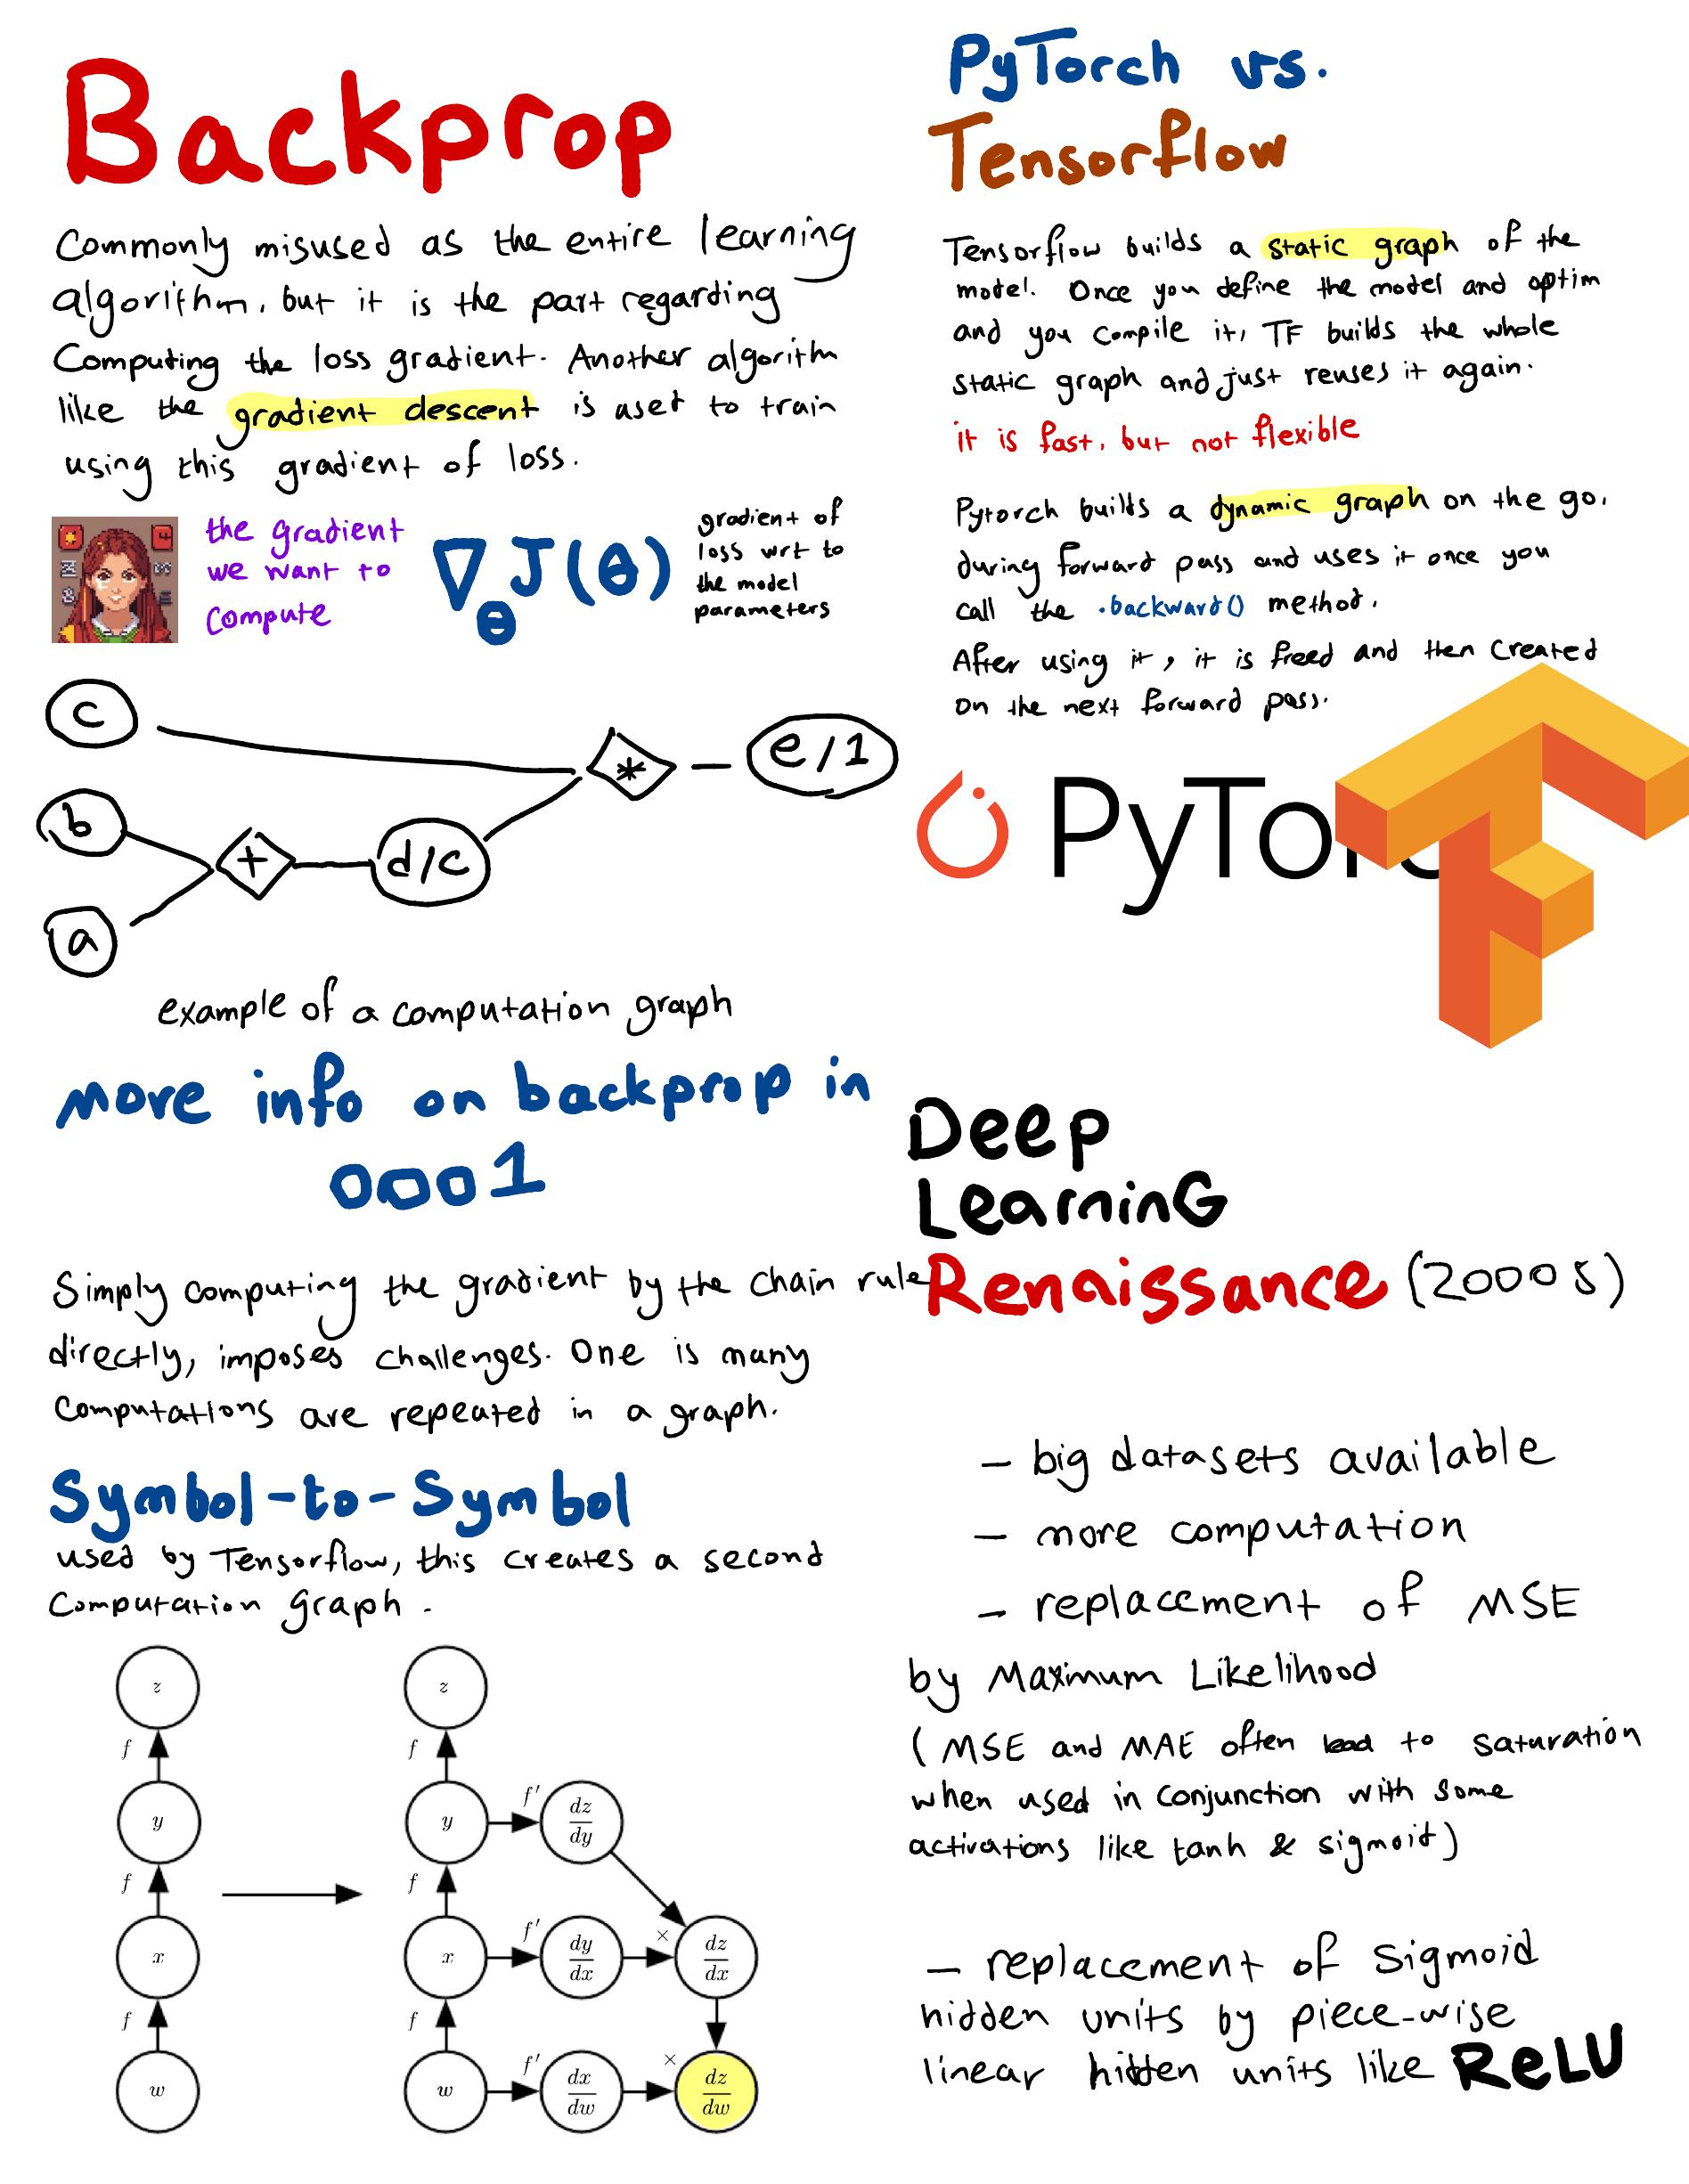 Backprop
Commonly misused as the entire learning
algorithm, but it is the part regarding
Computing the loss gradient. Another algorithm
like the gradient descent is used to train
using this gradient of loss.
the gradient
we want to
compute
∇θ J(θ)
gradient of
loss wrt to
the model
parameters
c
*
e/1
b
+
d/c
a
example of a computation graph
More info on backprop in
0001
Simply computing the gradient by the chain rule
directly, imposes challenges. One is many
computations are repeated in a graph.
Symbol-to-Symbol
used by Tensorflow, this creates a second
Computation graph.
z
f
y
f
x
f
w
z
f
y
f'
dz/dy
f
x
f'
dy/dx
×
dz/dx
f
w
f'
dx/dw
×
dz/dw
PyTorch vs.
Tensorflow
Tensorflow builds a static graph of the
model. Once you define the model and optim
and you compile it, TF builds the whole
static graph and just reuses it again.
it is fast, but not flexible
Pytorch builds a dynamic graph on the go,
during forward pass and uses it once you
call the .backward() method.
After using it, it is freed and then created
on the next forward pass.
PyTorc
Deep
LearninG
Renaissance (2000s)
- big datasets available
- more computation
- replacement of MSE
by Maximum Likelihood
(MSE and MAE often lead to saturation
when used in conjunction with some
activations like tanh & sigmoid)
- replacement of sigmoid
hidden units by piece-wise
linear hidden units like ReLU